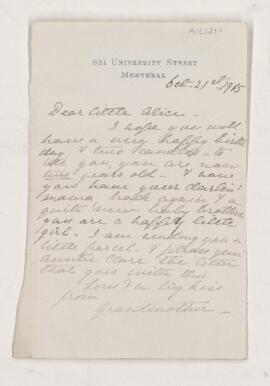 Acc1211
831 UNIVERSITY STREET
MONTREAL
Oct - 21st/1915
Dear little Alice -
I hope you will
have a very happy birth
day & two candles - to
tell you, you are now
two years old - & now
you have your darlin'
mama back again & a
quite new baby brother
you are a happy little
girl. I am sending you a
little parcel. & please give
auntie Clare the letter
that goes with this
Love & a big kiss
from
Grandmother -